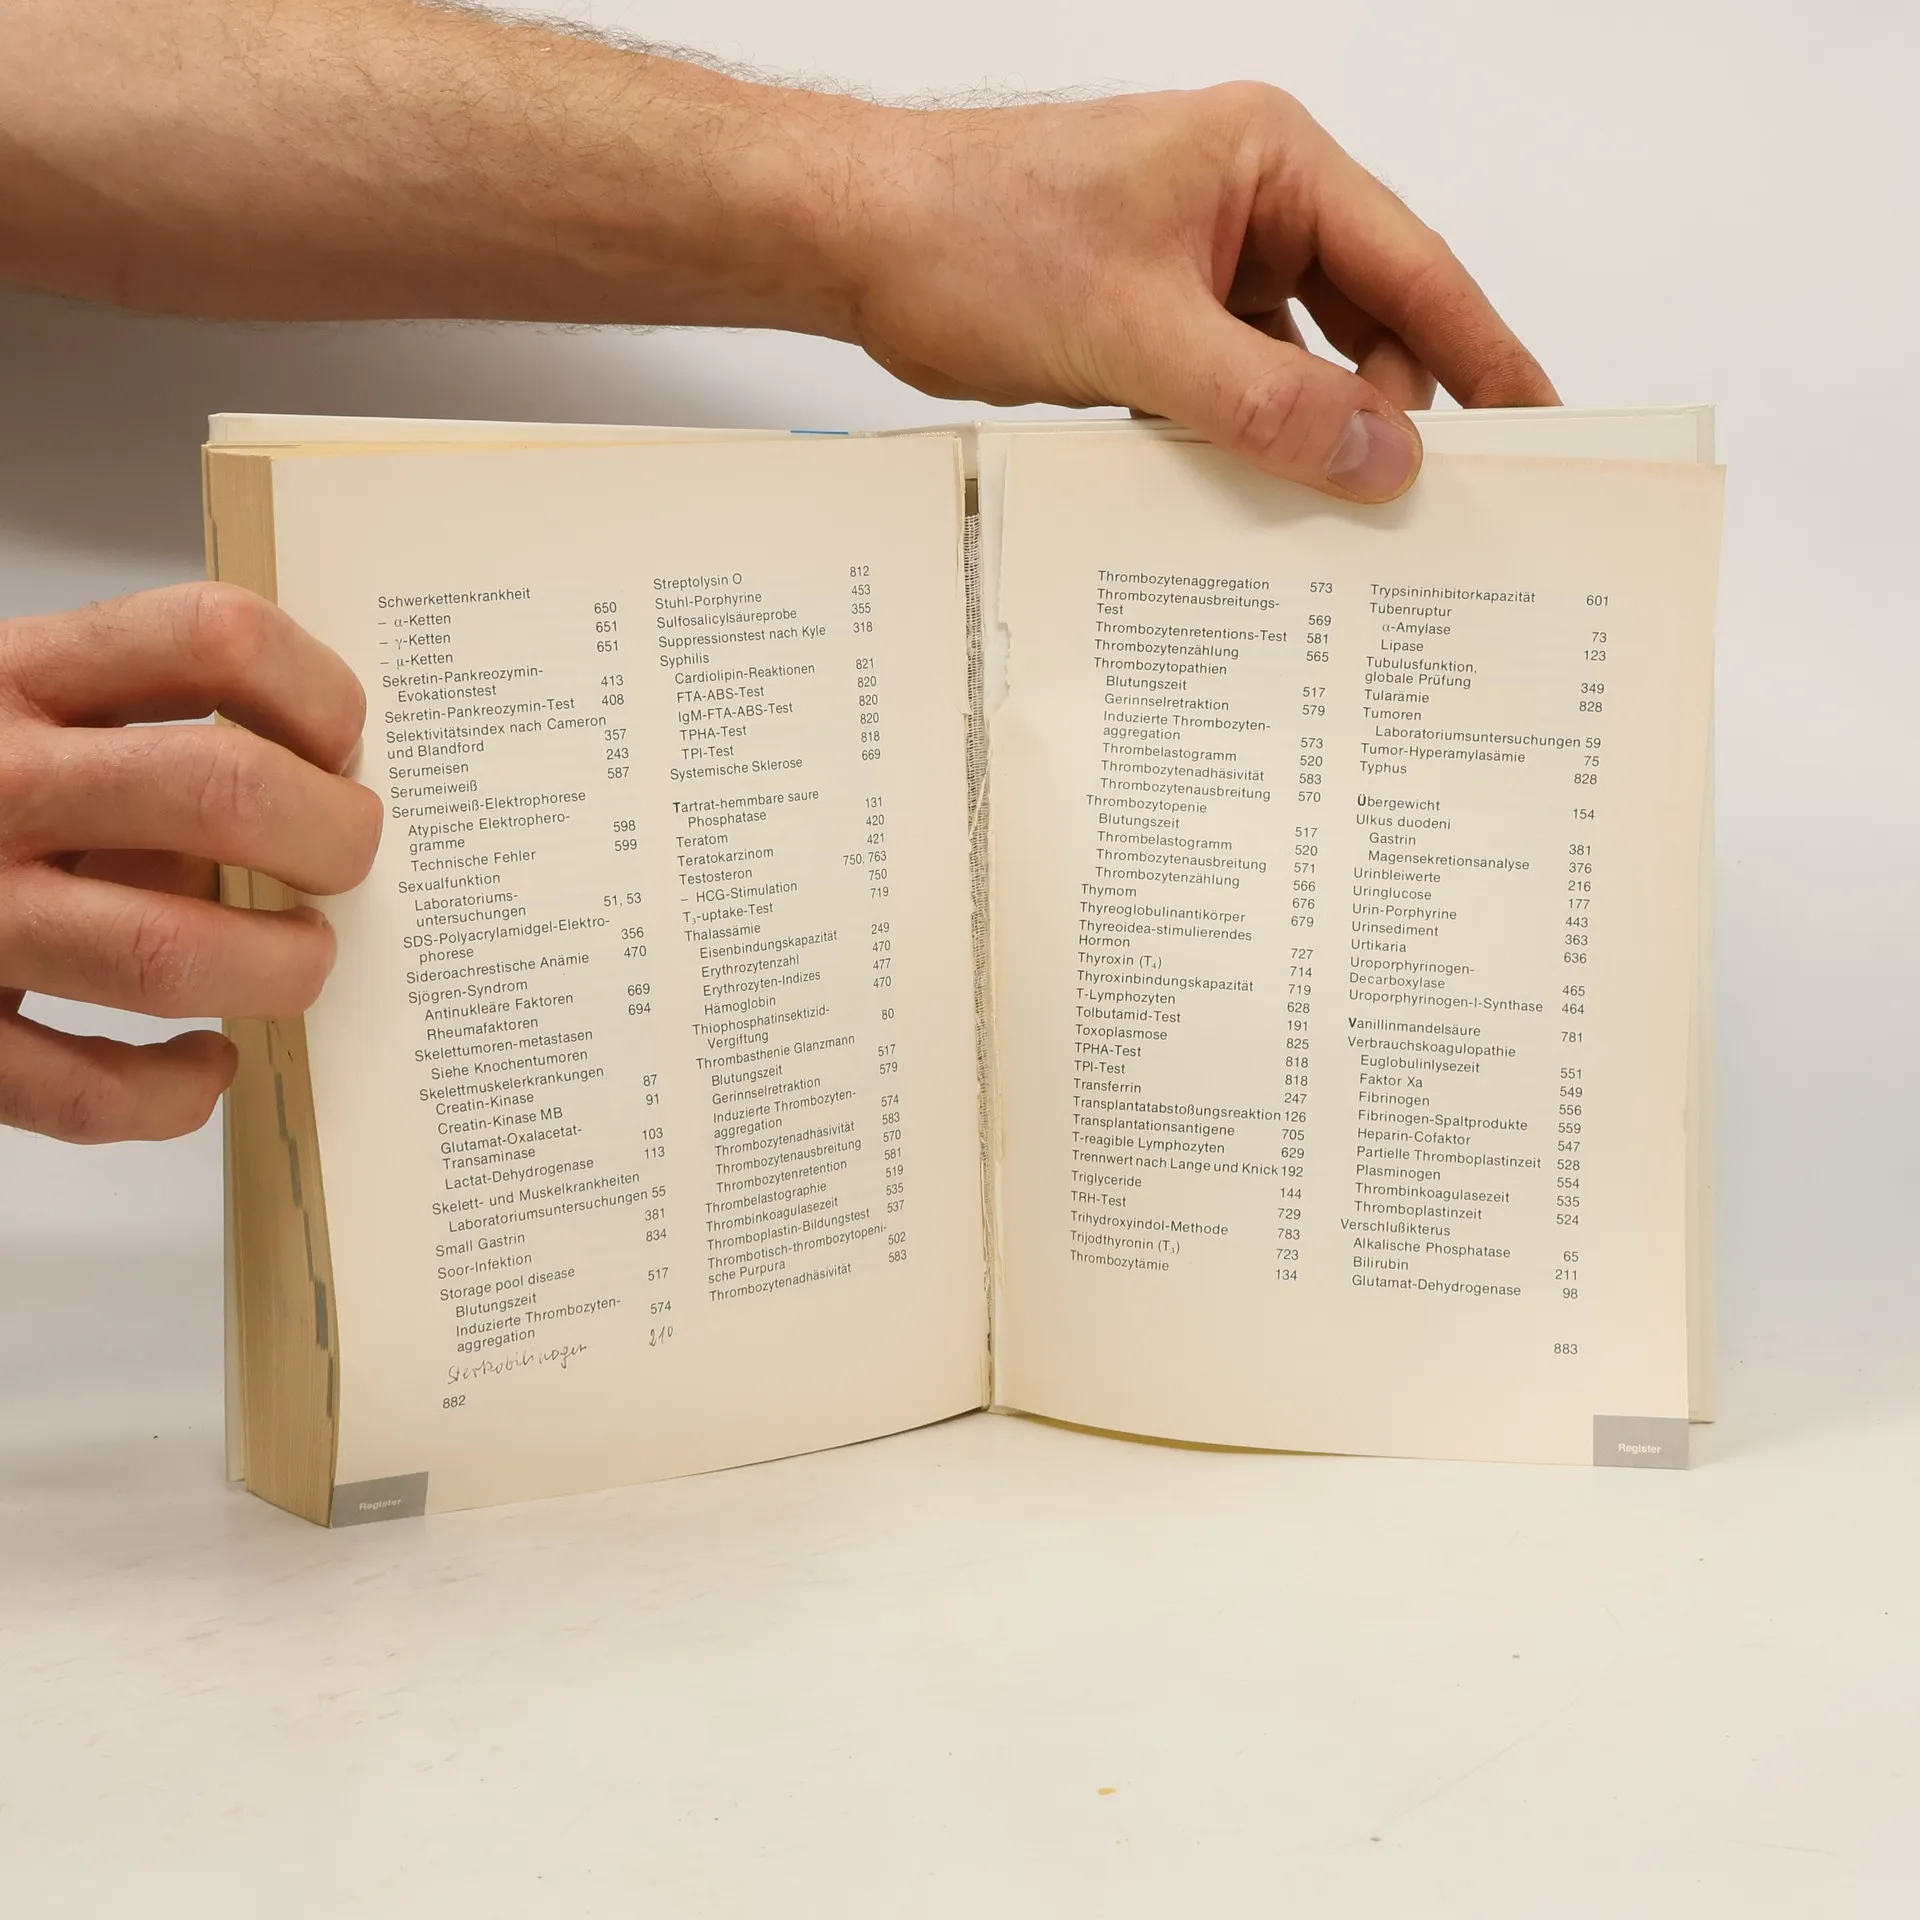 Schwerkettenkrankheit
– α-Ketten 650
– γ-Ketten 651
– μ-Ketten 651
Sekretin-Pankreozymin-
Evokationstest 413
Sekretin-Pankreozymin-Test 408
Selektivitätsindex nach Cameron
und Blandford 357
Serumeisen 243
Serumeiweiß 587
Serumeiweiß-Elektrophorese
Atypische Elektrophero-
gramme 598
Technische Fehler 599
Sexualfunktion
Laboratoriums-
untersuchungen 51, 53
SDS-Polyacrylamidgel-Elektro-
phorese 356
Sideroachrestische Anämie 470
Sjögren-Syndrom
Antinukleäre Faktoren 669
Rheumafaktoren 694
Skelettumoren-metastasen
Siehe Knochentumoren
Skelettmuskelerkrankungen
Creatin-Kinase 87
Creatin-Kinase MB 91
Glutamat-Oxalacetat-
Transaminase 103
Lactat-Dehydrogenase 113
Skelett- und Muskelkrankheiten
Laboratoriumsuntersuchungen 55
Small Gastrin 381
Soor-Infektion 834
Storage pool disease
Blutungszeit 517
Induzierte Thrombozyten-
aggregation 574
Sterkobilinogen 210
882
Streptolysin O 812
Stuhl-Porphyrine 453
Sulfosalicylsäureprobe 355
Suppressionstest nach Kyle 318
Syphilis
Cardiolipin-Reaktionen 821
FTA-ABS-Test 820
IgM-FTA-ABS-Test 820
TPHA-Test 820
TPI-Test 818
Systemische Sklerose 669
Tartrat-hemmbare saure
Phosphatase 131
Teratom 420
Teratokarzinom 421
Testosteron 750, 763
– HCG-Stimulation 750
T₃-uptake-Test 719
Thalassämie
Eisenbindungskapazität 249
Erythrozytenzahl 470
Erythrozyten-Indizes 477
Hämoglobin 470
Thiophosphatinsektizid-
Vergiftung 80
Thrombasthenie Glanzmann
Blutungszeit 517
Gerinnselretraktion 579
Induzierte Thrombozyten-
aggregation 574
Thrombozytenadhäsivität 583
Thrombozytenausbreitung 570
Thrombozytenretention 581
Thrombelastographie 519
Thrombinkoagulasezeit 535
Thromboplastin-Bildungstest 537
Thrombotisch-thrombozytopeni-
sche Purpura 502
Thrombozytenadhäsivität 583
Register
Thrombozytenaggregation 573
Thrombozytenausbreitungs-
Test 569
Thrombozytenretentions-Test 581
Thrombozytenzählung 565
Thrombozytopathien
Blutungszeit 517
Gerinnselretraktion 579
Induzierte Thrombozyten-
aggregation 573
Thrombelastogramm 520
Thrombozytenadhäsivität 583
Thrombozytenausbreitung 570
Thrombozytopenie
Blutungszeit 517
Thrombelastogramm 520
Thrombozytenausbreitung 571
Thrombozytenzählung 566
Thymom 676
Thyreoglobulinantikörper 679
Thyreoidea-stimulierendes
Hormon 727
Thyroxin (T₄) 714
Thyroxinbindungskapazität 719
T-Lymphozyten 628
Tolbutamid-Test 191
Toxoplasmose 825
TPHA-Test 818
TPI-Test 818
Transferrin 247
Transplantatabstoßungsreaktion 126
Transplantationsantigene 705
T-reagible Lymphozyten 629
Trennwert nach Lange und Knick 192
Triglyceride 144
TRH-Test 729
Trihydroxyindol-Methode 783
Trijodthyronin (T₃) 723
Thrombozytämie 134
Trypsininhibitorkapazität 601
Tubenruptur
α-Amylase 73
Lipase 123
Tubulusfunktion,
globale Prüfung 349
Tularämie 828
Tumoren
Laboratoriumsuntersuchungen 59
Tumor-Hyperamylasämie 75
Typhus 828
Übergewicht 154
Ulkus duodeni
Gastrin 381
Magensekretionsanalyse 376
Urinbleiwerte 216
Uringlucose 177
Urin-Porphyrine 443
Urinsediment 363
Urtikaria 636
Uroporphyrinogen-
Decarboxylase 465
Uroporphyrinogen-I-Synthase 464
Vanillinmandelsäure 781
Verbrauchskoagulopathie
Euglobulinlysezeit 551
Faktor Xa 549
Fibrinogen 556
Fibrinogen-Spaltprodukte 559
Heparin-Cofaktor 547
Partielle Thromboplastinzeit 528
Plasminogen 554
Thrombinkoagulasezeit 535
Thromboplastinzeit 524
Verschlußikterus
Alkalische Phosphatase 65
Bilirubin 211
Glutamat-Dehydrogenase 98
883
Register